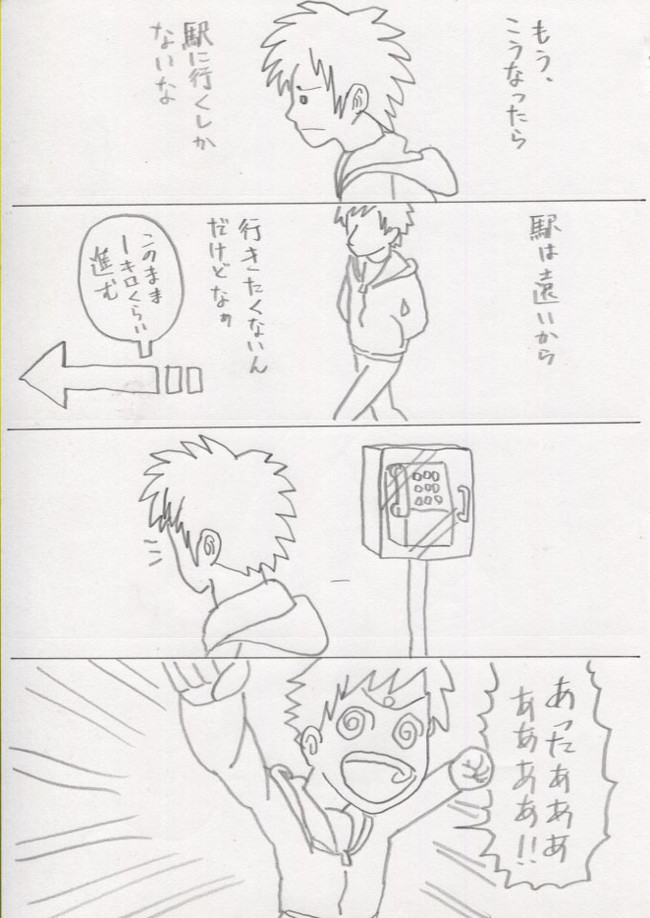 もう、
こうなったら
駅に行くしか
ないな
駅は遠いから
行きたくないん
だけどなぁ
このまま
一キロくらい
進む
あったぁああ
ああああ!!